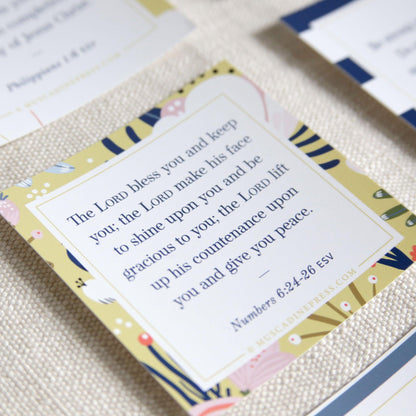 of Jesus Christ
Philippians 1:6 ESV
The LORD bless you and keep
you; the LORD make his face
to shine upon you and be
gracious to you; the LORD lift
up his countenance upon
you and give you peace.
—
Numbers 6:24-26 ESV
© MUSCADINEPRESS.COM